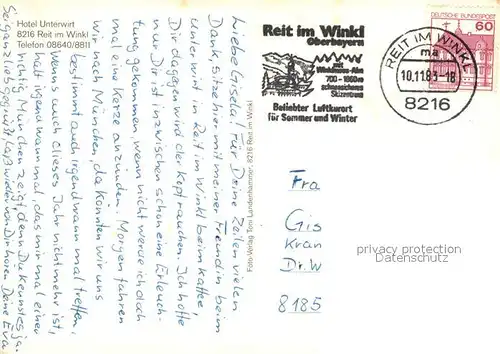 Hotel Unterwirt
8216 Reit im Winkl
Telefon 08640/8811
Liebe Gisela! Für Deine Zeilen vielen
Dank, sitze hier mit meiner Freundin beim
Unterwirt in Reit im Winkl beim Kaffee,
Dir dagegen wird der Kopf rauchen. Ich hoffe
nur Dir ist inzwischen schon eine Erleuch-
tung gekommen, wenn nicht werde ich doch
mal eine Kerze anzünden. Morgen fahren
wir nach München, da könnten wir uns
bestimmt auch irgendwann mal treffen,
wenns auch dieses Jahr nicht mehr ist,
halt irgendwann mal, das mir mal einer
richtig München zeigt, denn Du kennst es ja.
Sei ganz lieb gegrüßt, laß wieder von Dir hören Deine Eva
Foto-Verlag Toni Landenhammer, 8216 Reit im Winkl
Reit im Winkl
Oberbayern
mit
Winklmoos-Alm
schneesicheres
Skizentrum
Beliebter Luftkurort
für Sommer und Winter
REIT IM WINKL
ma
10.11.83-18
8216
DEUTSCHE BUNDESPOST
60
Fra
Gis
Kran
Dr. W
8185
privacy protection
DatenSchutz